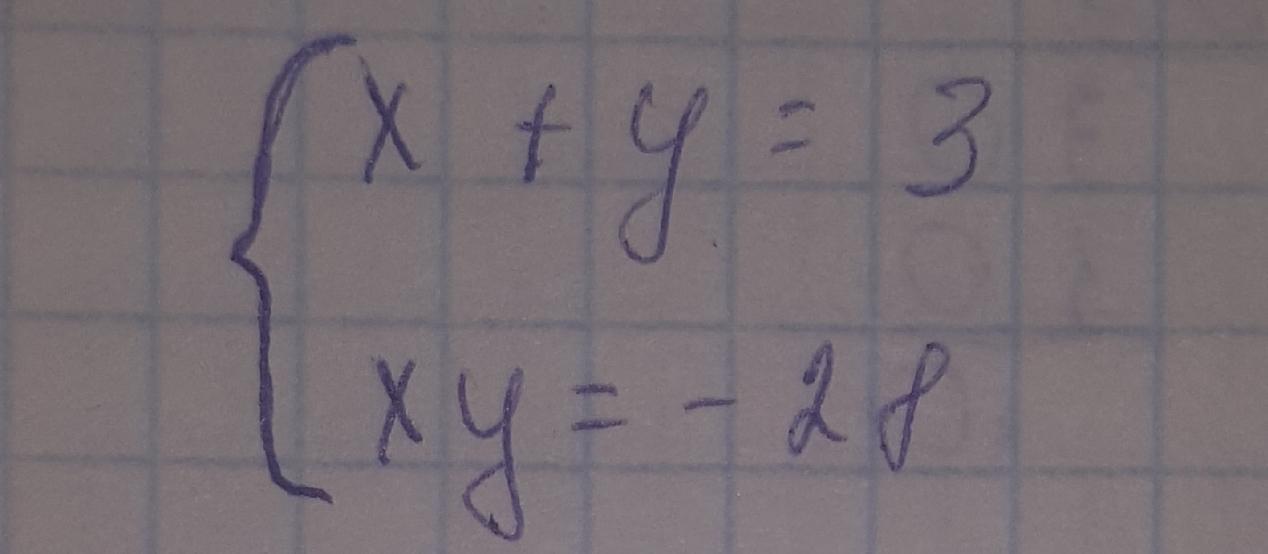 x + y = 3
xy = - 28